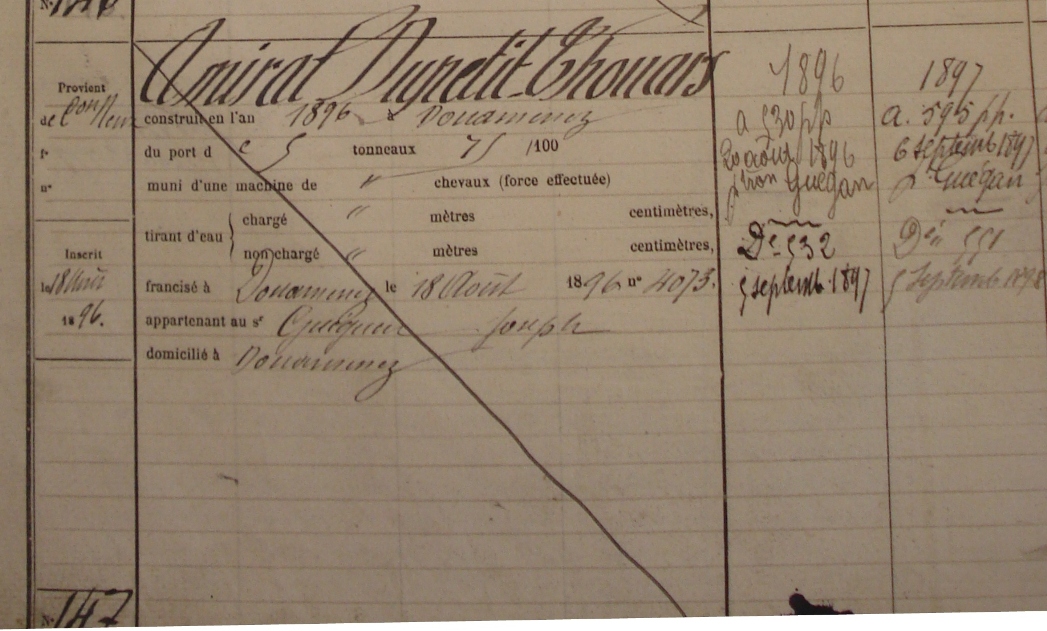 Amiral Dupetit-Thouars
Provient
de
construit en l'an 1896 à Douarnenez
f°
du port de 5 tonneaux 75 /100
n°
muni d'une machine de " chevaux (force effectuée)
tirant d'eau { chargé " mètres centimètres,
non chargé " mètres centimètres,
Inscrit
le 18 Août
1896.
francisé à Douarnenez le 18 Août 1896 n° 4073.
appartenant au sr Joseph
domicilié à Douarnenez
1896
a 530 pp
20 août 1896
pron Guégan
Dn 532
5 septemb. 1897
1897
a. 595 pp.
6 septemb 1897
pn Guégan
5 Septemb 1898
N° 147